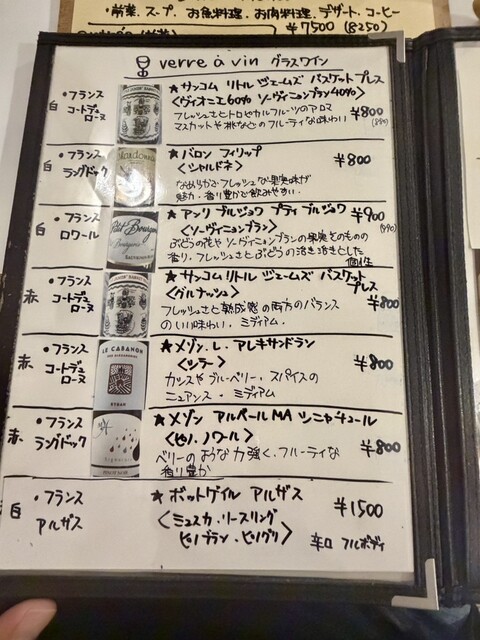 ・前菜、スープ、お魚料理、お肉料理、デザート、コーヒー
¥7500 (8250)
verre à vin グラスワイン
白 ・フランス コートデュローヌ
★サンコム リトル ジェームズ バスケット プレス
<ヴィオニエ60% ソーヴィニョンブラン40%>
フレッシュさとトロピカルフルーツのアロマ
マスカットや桃などのフルーティな味わい
¥800
(880)
白 ・フランス ラングドック
★バロン フィリップ
<シャルドネ>
なめらかでフレッシュな果実味が
魅力・香り豊かで飲みやすい.
¥800
白 ・フランス ロワール
Petit Bourgeois
★アンリ ブルジョワ プティ ブルジョワ
<ソーヴィニョンブラン>
ぶどうの花や ソーヴィニョンブランの果実そのものの
香り.フレッシュさとぶどうの活き活きとした
個性
¥900
(990)
赤 ・フランス コートデュローヌ
★サンコム リトル ジェームズ バスケット
プレス
<グルナッシュ>
フレッシュさと熟成感の両方のバランス
のいい味わい. ミディアム.
¥800
赤 ・フランス コートデュローヌ
LE CABANON
SYRAH
★メゾン.L.アレキサンドラン
<シラー>
カシスや ブルーベリー.スパイスの
ニュアンス・ミディアム
¥800
赤 ・フランス ラングドック
★メゾン アルベール MA シニャチュール
<ピノ.ノワール>
ベリーのような力強く.フルーティな
香り豊か
¥800
白 ・フランス アルザス
★ボットゲイル アルザス
<ミュスカ・リースリング
ピノブラン・ピノグリ>
¥1500
辛口 フルボディ